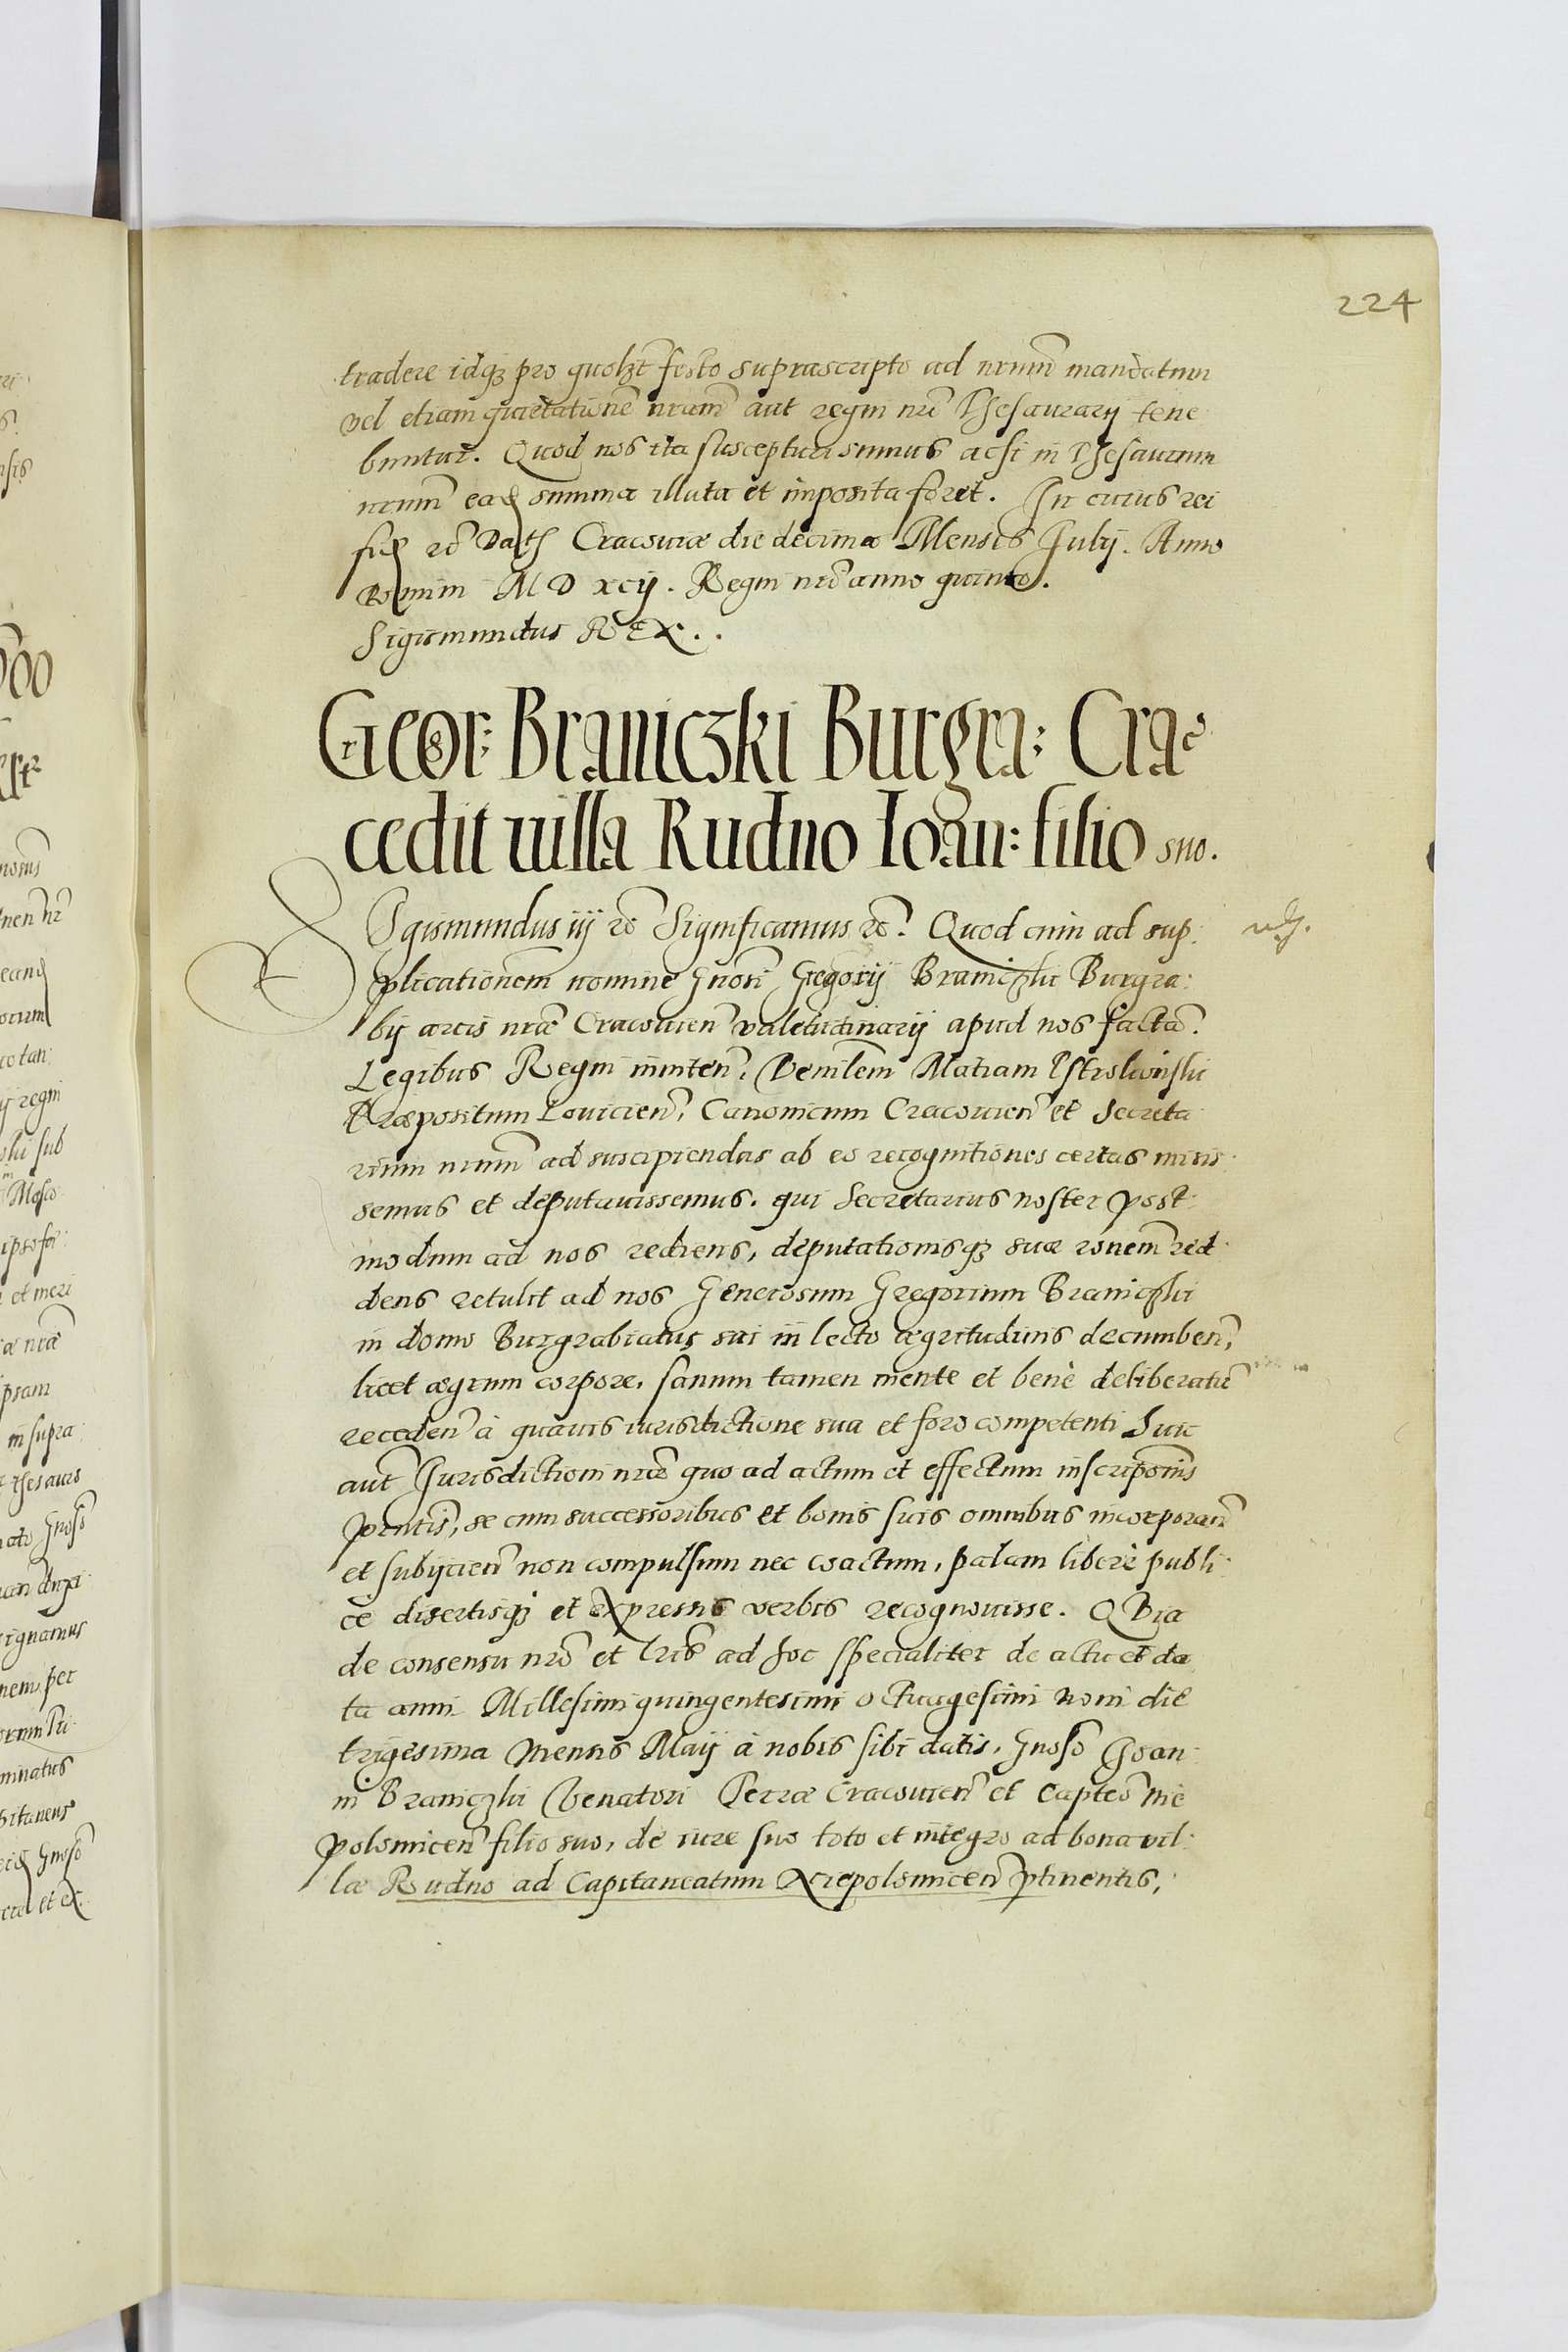 224
tradere idq₃ pro quolꝫt festo suprascripto ad nrum̃ mandatum
vel etiam quietationẽ nram̃ aut regni nri Thesaurarij tene
buntur. Quod nos ita suscepturi sumus acsi in Thesaurum
nrum̃ ead summa illata et imposita foret. In cuius rei
fid ꝛc̃ Dat Cracouiæ die decima Mensis Julij. Anno
Domini M D xcij. Regni nri anno quinto.
Sigismundus REX..
Geor: Braniczki Burgra: Crac̃
cedit uilla Rudno Ioan: filio suo.
Sigismundus iij ꝛc̃ Significamus ꝛc̃. Quod cum ad sup
plicationem nomine Gnosi Gregorij Braniczki Burgra:
bij arcis nræ Cracouien̄ valetudinarij apud nos factã.
Legibus Regni inniten̄, Venlem Matiam
Præpositum Louicien̄, Canonicum Cracouien̄ et Secreta
rium nrum̃ ad suscipiendas ab eo recognitiones certas misis
semus et deputauissemus. qui Secretarius noster post
modum ad nos rediens, deputationisq₃ suæ ronem̃ red
dens retulit ad nos Generosum Gregorium Braniczki
in domo Burgrabiatus sui in lecto ægritudinis decumben̄,
licet ægrum corpore, sanum tamen mente et benè deliberatũ
receden̄ à quauis iurisdictione sua et foro competenti Suic
aut̃ Jurisdictioni nræ quo ad actum et effectum inscripõnis
pn̄tis, se cum successoribus et bonis suis omnibus incorporan̄
et subijcien̄ non compulsum nec coactum, palam liberè publi
cè disertisq₃ et expressis verbis recognouisse. Quia
de consensu nro et lris̃ ad hoc specialiter de actu et da
ta anni Millesimi quingentesimi octuagesimi noni die
trigesima Mensis Maij à nobis sibi datis, Gnoso Joan
ni Braniczki Venatori Terræ Cracouien̄ et Capteo Nie
polomicen̄ filio suo, de iure suo toto et integro ad bona vil
læ Rudno ad Capitaneatum Niepolomicen̄ ptinentis,